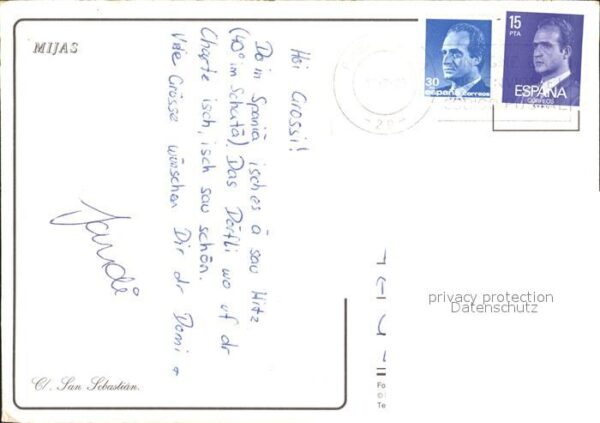 MIJAS
Hoi Grossi!
Do in Spaniä isches ä sau Hitz
(40° im Schatä) Das Dörfli wo uf dr
Charte isch, isch sau schön.
Viele Grüsse wünschen Dir dr Domi +
Sandi
C/. San Sebastián.
30
españa correos
15
PTA
ESPAÑA
CORREOS
privacy protection
Datenschutz
Fo
©
Te